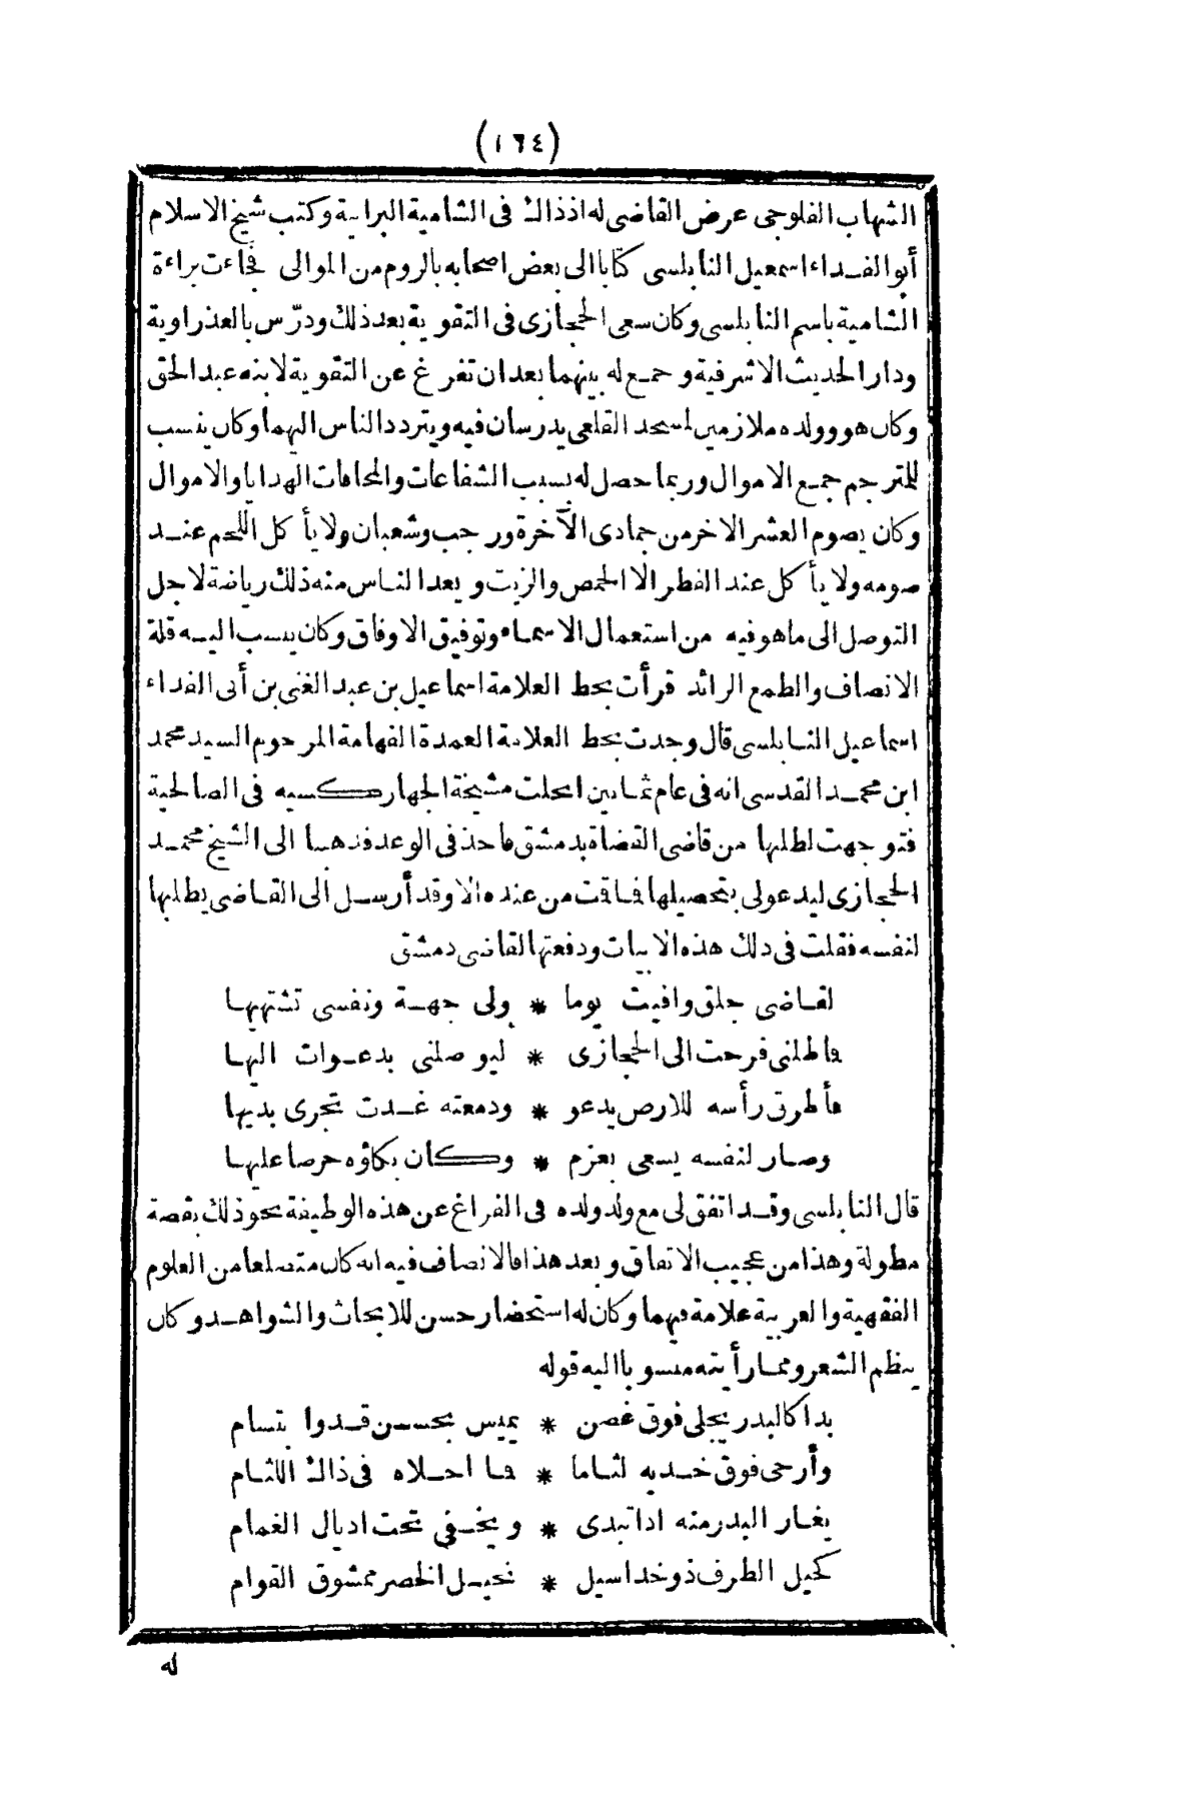 (١٦٤)
الشهاب الفلوجى عرض القاضى له اذذاك فى الشامية البرانية وكتب شيخ الاسلام
أبو الفداء اسمعيل النابلسى كتابا الى بعض اصحابه بالروم من الموالى فجاءت براءة
الشامية باسم النابلسى وكان سعى الحجازى فى التقوية بعد ذلك ودرّس بالعذراوية
ودار الحديث الاشرفية وجمع له بينهما بعد ان تفرغ عن التقوية لابنه عبد الحق
وكان هو وولده ملازمين لمسجد القلعى يدرسان فيه ويتردد الناس اليهما وكان ينسب
للمترجم جمع الاموال وربما حصل له بسبب الشفاعات والمحامات الهدايا والاموال
وكان يصوم العشر الاخر من جمادى الآخرة ورجب وشعبان ولا يأكل اللحم عند
صومه ولا يأكل عند الفطر الا الحمص والزيت ويعد الناس منه ذلك رياضة لاجل
التوصل الى ما هو فيه من استعمال الاسماء وتوفيق الاوفاق وكان ينسب اليه قلة
الانصاف والطمع الزائد قرأت بخط العلامة اسماعيل بن عبد الغنى بن أبى الفداء
اسماعيل النابلسى قال وجدت بخط العلامة العمدة الفهامة المرحوم السيد محمد
ابن محمد القدسى انه فى عام ثمانين انحلت مشيخة الجهاركسيه فى الصالحية
فتوجهت لطلبها من قاضى القضاة بدمشق فأخذ فى الوعد فذهبنا الى الشيخ محمد
الحجازى ليدعو لى بتحصيلها فما قمت من عنده الا وقد أرسل الى القاضى يطلبها
لنفسه فقلت فى ذلك هذه الابيات ودفعتها لقاضى دمشق
لقاضى جلق وافيت يوما * ولى جهة ونفسى تشتهيها
فاطلنى فرحت الى الحجازى * ليوصلنى بدعوات اليها
فأطرق رأسه للارض يدعو * ودمعته غدت تجرى يديها
وصار لنفسه يسعى بعزم * وكان بكاؤه حرصا عليها
قال النابلسى وقد اتفق لى مع ولد ولده فى الفراغ عن هذه الوظيفة نحو ذلك بقصة
مطولة وهذا من عجيب الاتفاق وبعد هذا فالانصاف فيه انه كان متضلعا من العلوم
الفقهية والعربية علامة فيهما وكان له استحضار حسن للابحاث والشواهد وكان
ينظم الشعر ومما رأيته منسوبا اليه قوله
بدا كالبدر يجلى فوق غصن * يميس بحسن قد وابتسام
وأرخى فوق خديه لثاما * فما احلاه فى ذاك اللثام
يغار البدر منه اذا تبدى * ويخفى تحت اذيال الغمام
كحيل الطرف ذو خد اسيل * نحيل الخصر ممشوق القوام
له